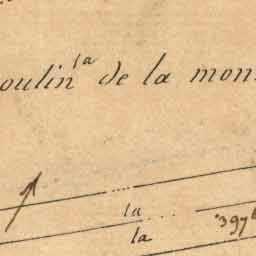 la
oulin de la mon
la
la
397